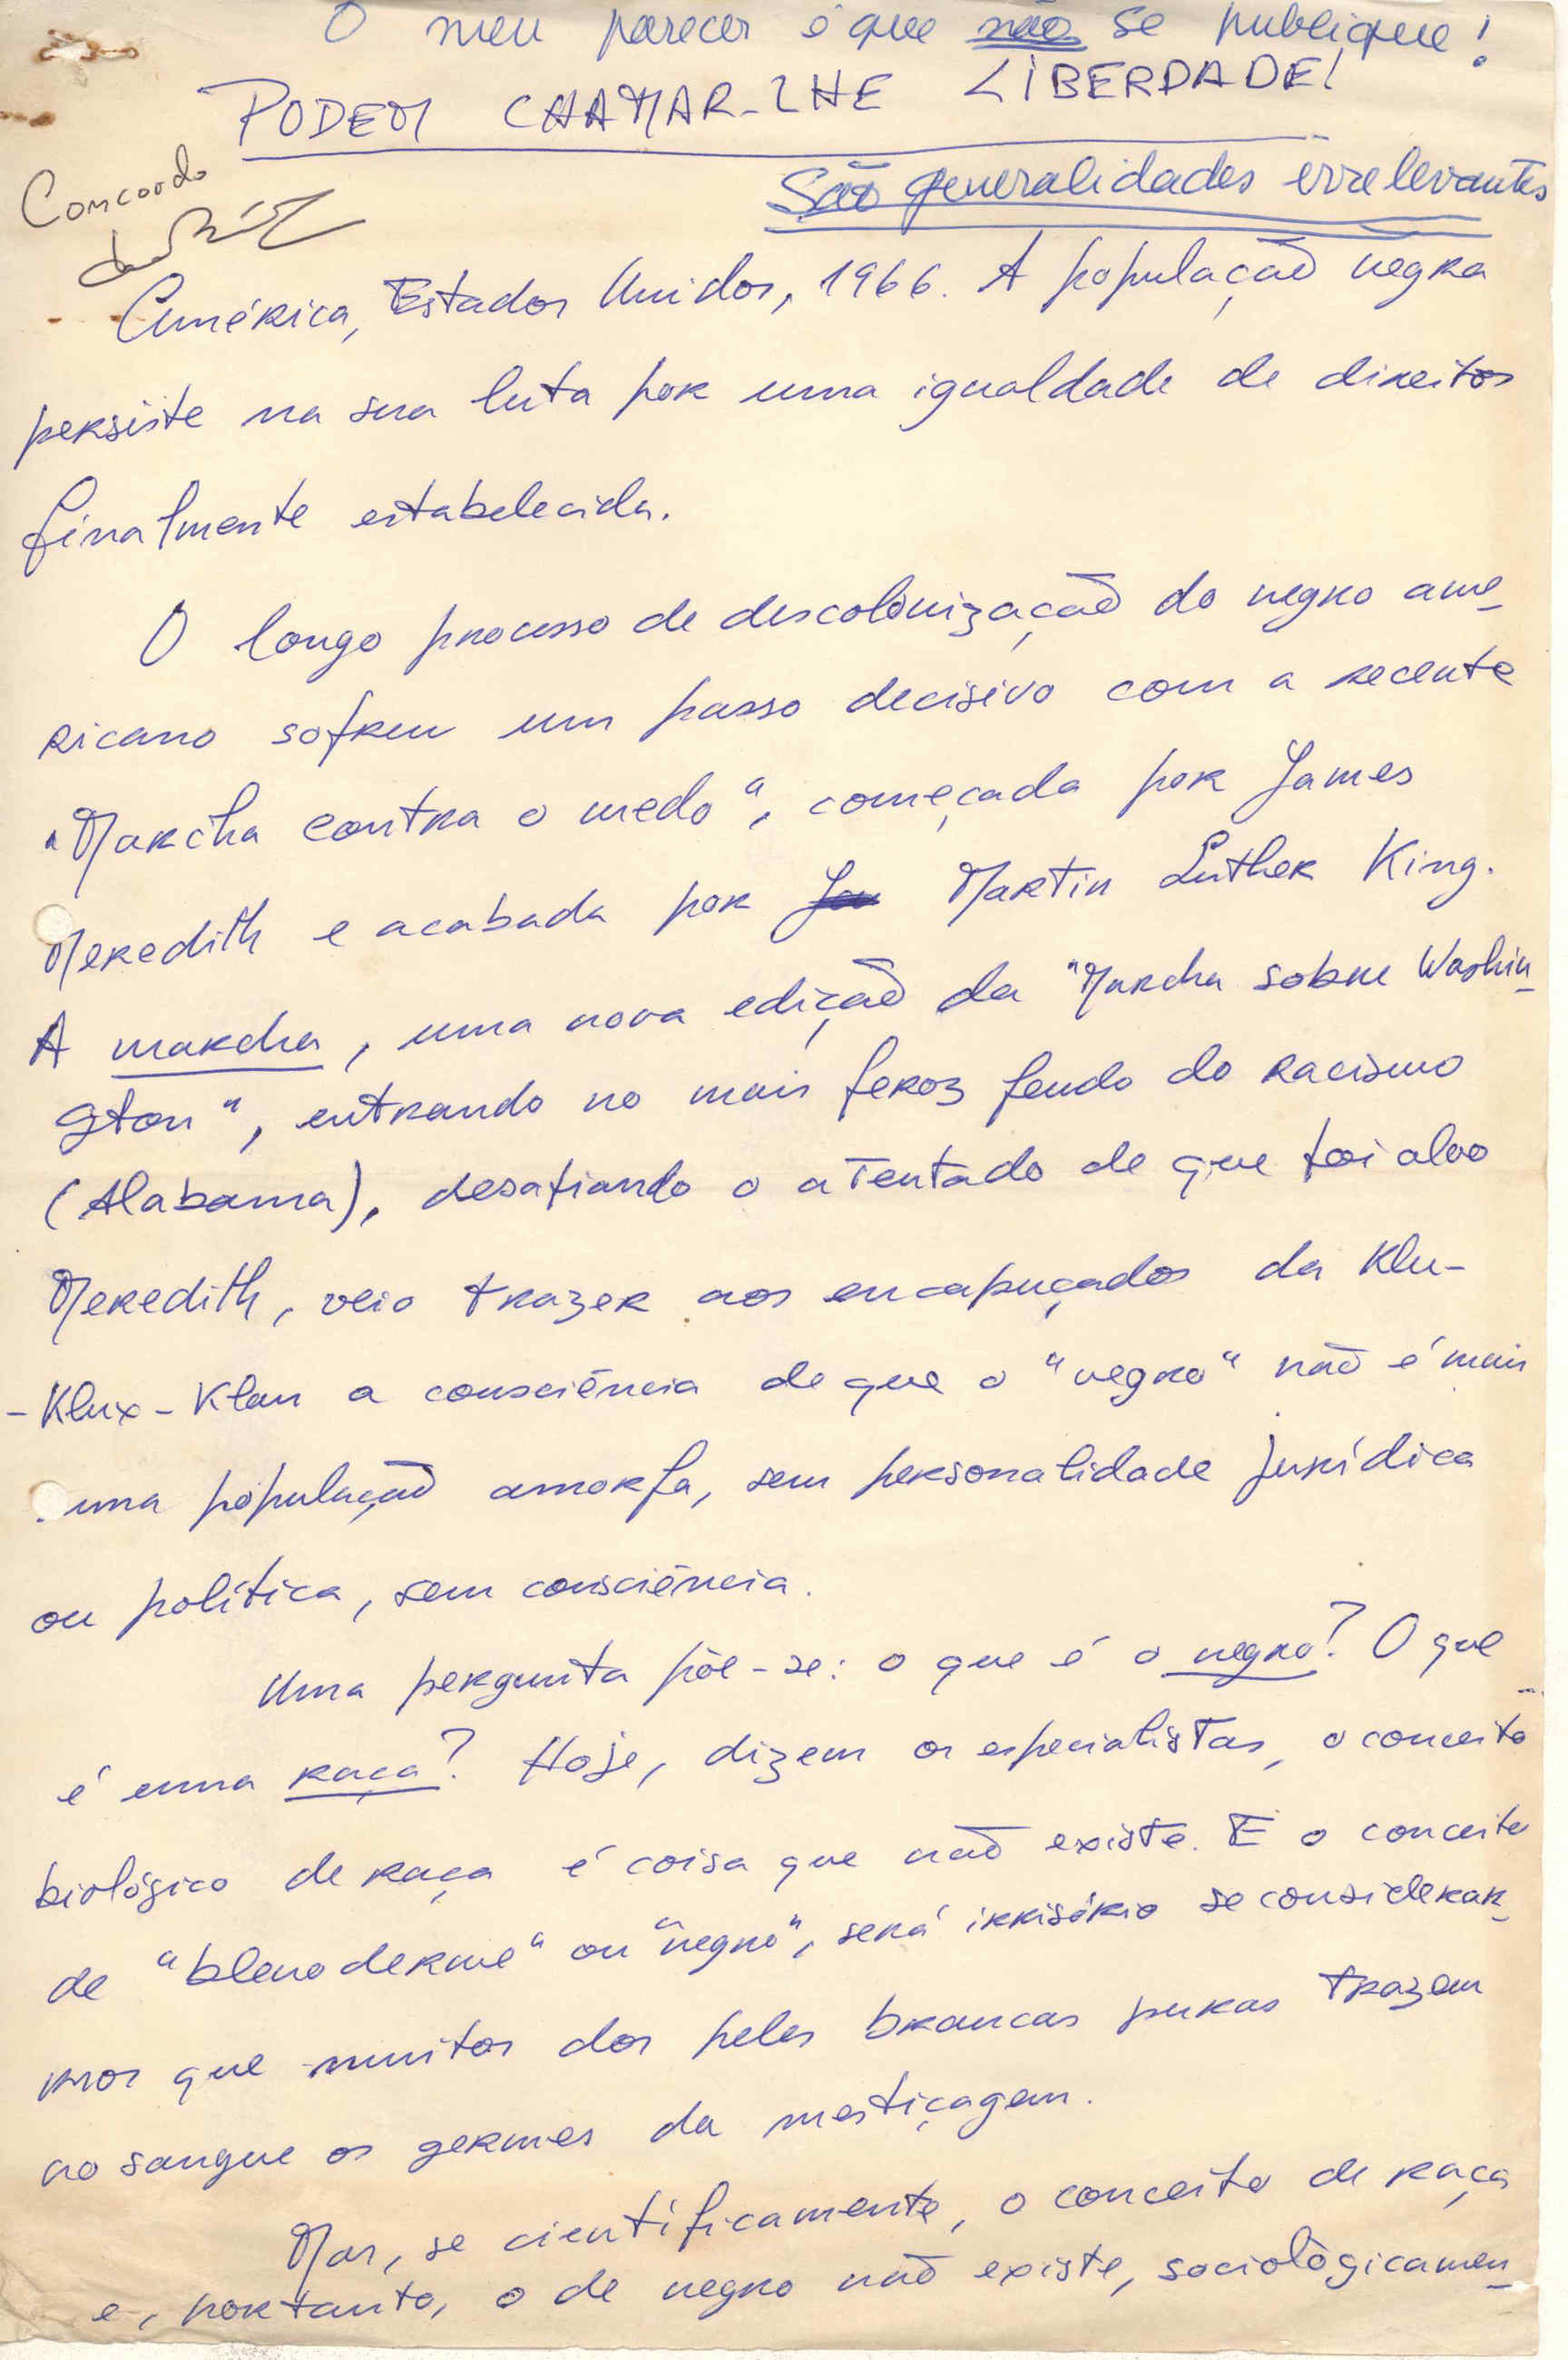 O meu parecer é que não se publique!
PODEM CHAMAR-LHE LIBERDADE!
Concordo
São generalidades irrelevantes
América, Estados Unidos, 1966. A população negra
persiste na sua luta por uma igualdade de direitos
finalmente estabelecida.
O longo processo de descolonização do negro ame-
ricano sofreu um passo decisivo com a recente
"Marcha contra o medo", começada por James
Meredith e acabada por Martin Luther King.
A marcha, uma nova edição da "Marcha sobre Washin-
gton", entrando no mais feroz feudo do racismo
(Alabama), desafiando o atentado de que foi alvo
Meredith, veio trazer aos encapuçados da Klu-
-Klux-Klan a consciência de que o "negro" não é mais
uma população amorfa, sem personalidade jurídica
ou política, sem consciência.
Uma pergunta põe-se: o que é o negro? O que
é uma raça? Hoje, dizem os especialistas, o conceito
biológico de raça é coisa que não existe. E o conceito
de "blenoderme" ou "negro", será irrisório se considerar-
mos que muitos dos peles brancas puras trazem
no sangue os germes da mestiçagem.
Mas, se cientificamente, o conceito de raça
e, portanto, o de negro não existe, sociològicamen-